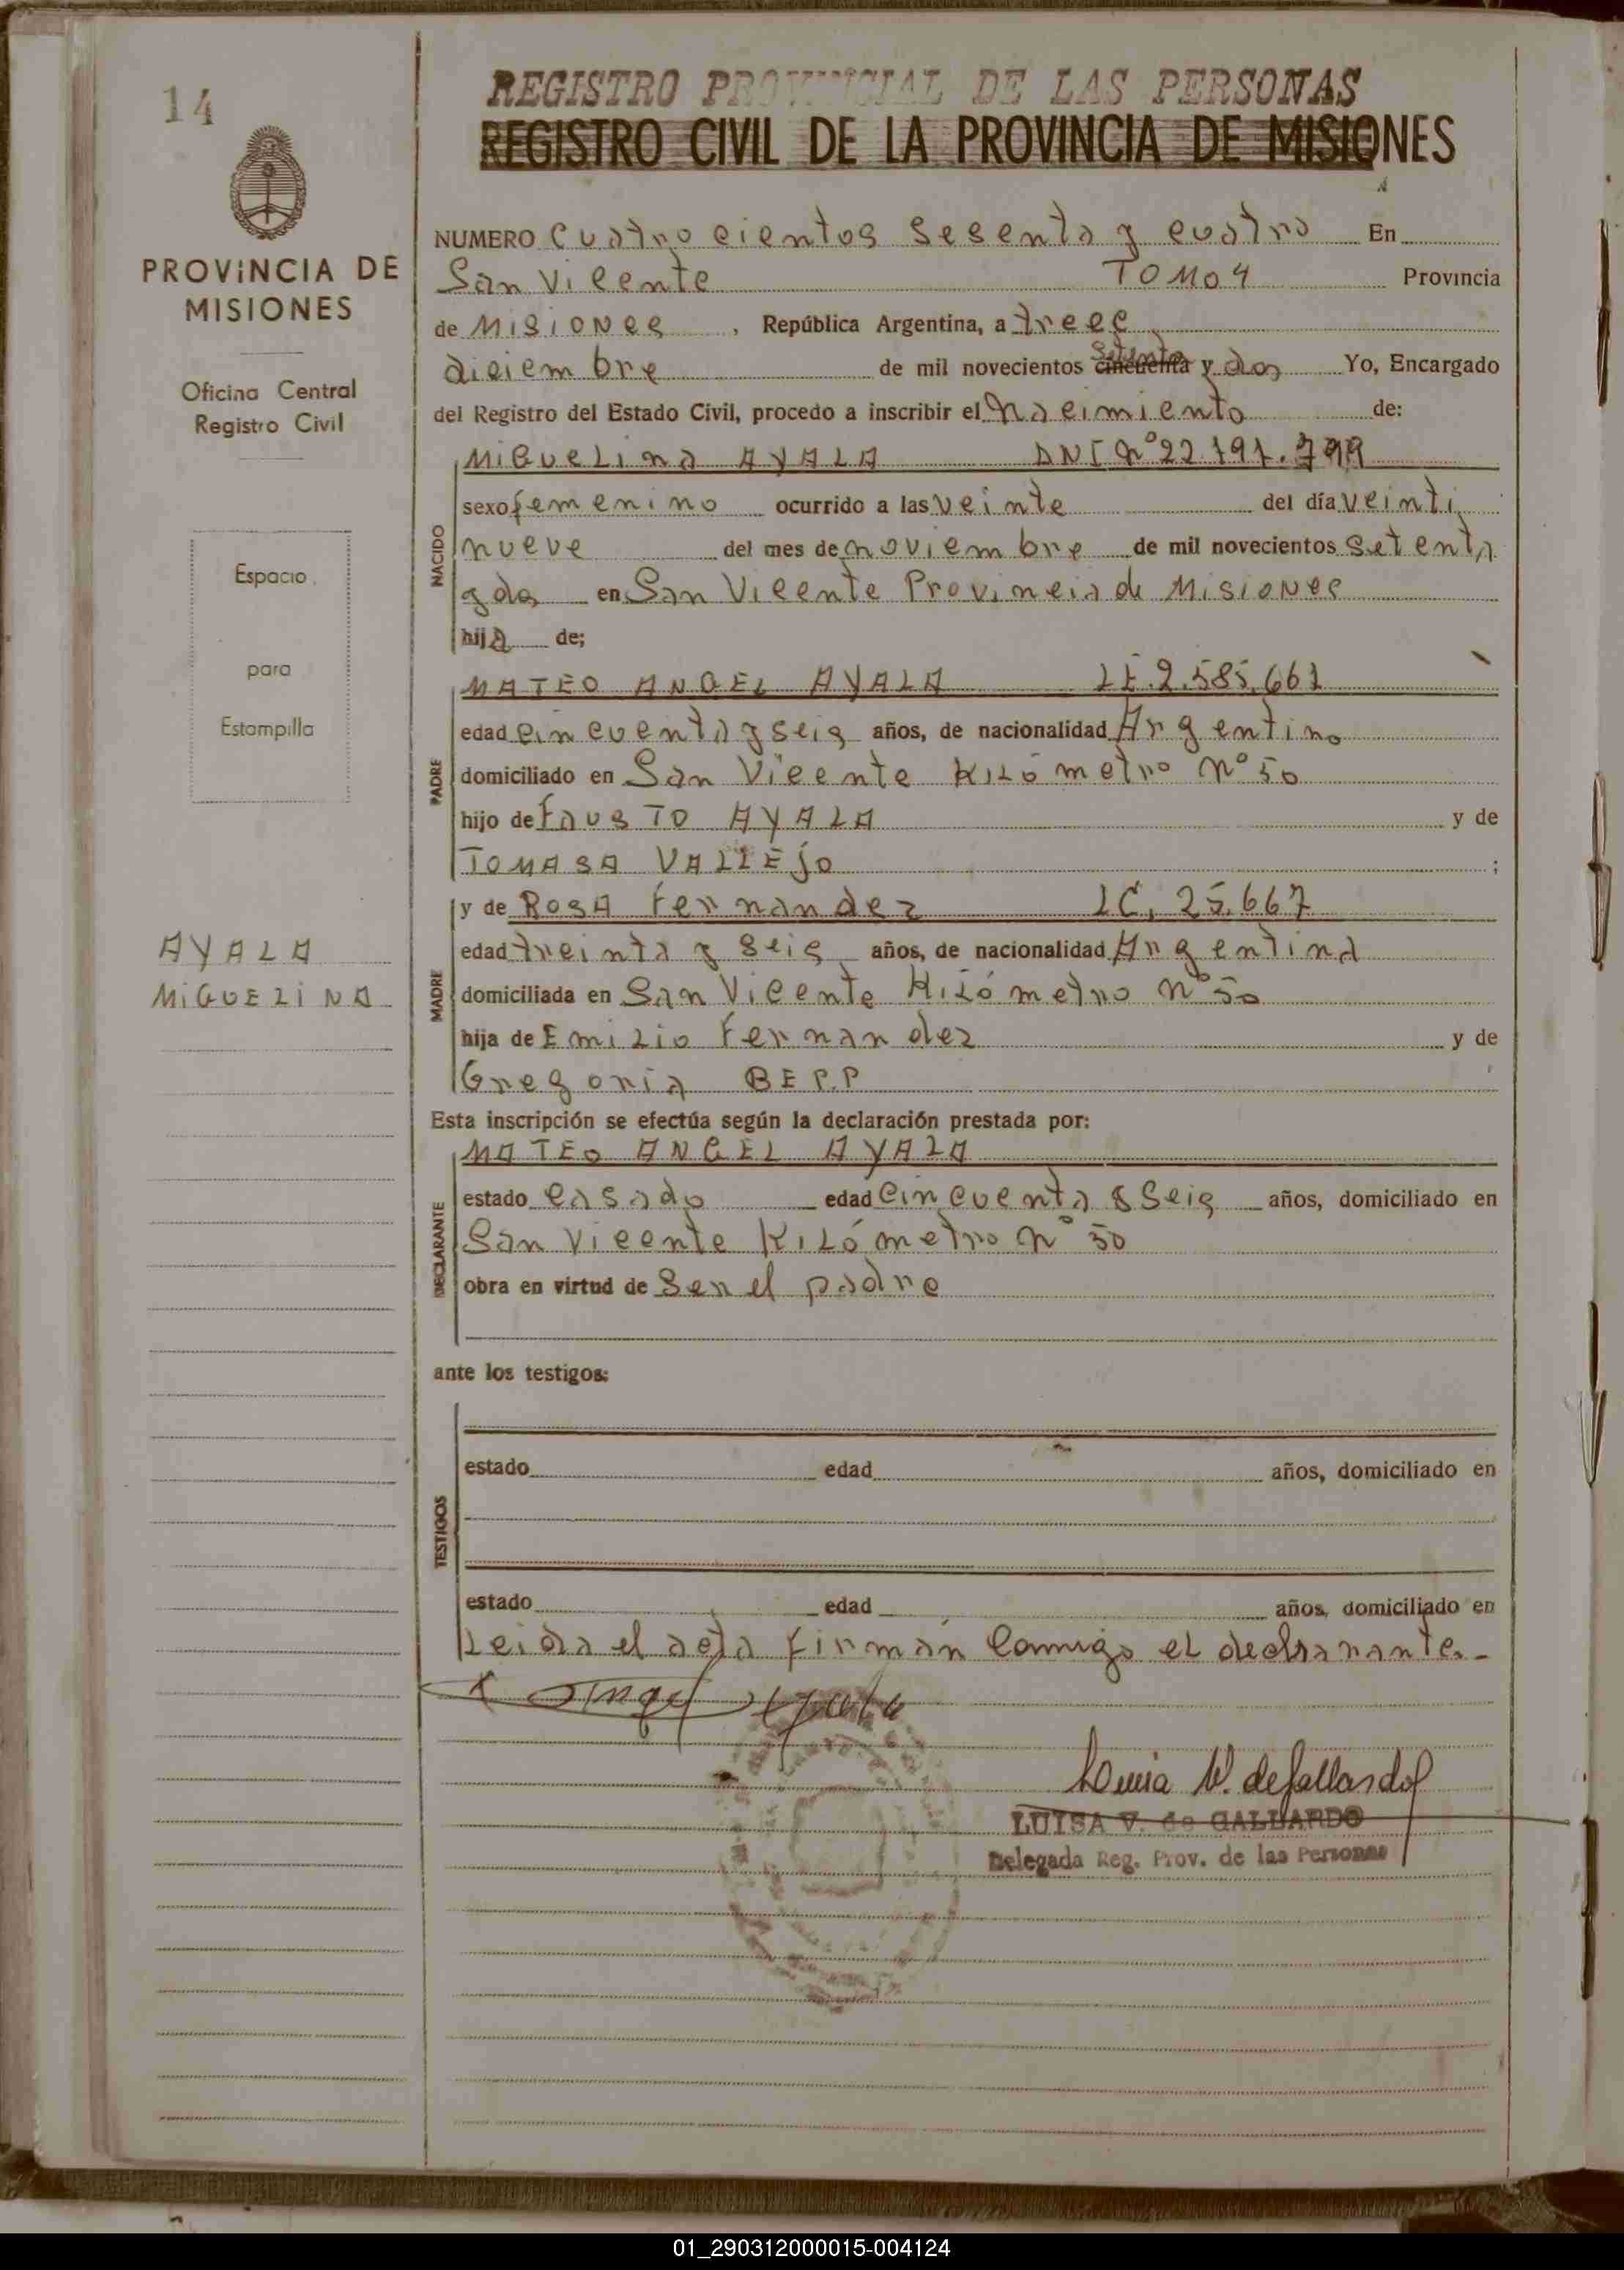 14
PROVINCIA DE
MISIONES
Oficina Central
Registro Civil
Espacio
para
Estampilla
AYALA
MIGUELINA
REGISTRO PROVINCIAL DE LAS PERSONAS
REGISTRO CIVIL DE LA PROVINCIA DE MISIONES
NUMERO Cuatrocientos sesenta y cuatro En
San Vicente TOMO 4 Provincia
de MISIONES, República Argentina, a trece
diciembre de mil novecientos cincuenta setenta y dos Yo, Encargado
del Registro del Estado Civil, procedo a inscribir el Nacimiento de:
NACIDO
MIGUELINA AYALA DNI Nº 22.191.799
sexo femenino ocurrido a las veinte del día veinti
nueve del mes de noviembre de mil novecientos setenta
y dos en San Vicente Provincia de Misiones
hija de;
PADRE
MATEO ANGEL AYALA LE.2.585.661
edad cincuenta y seis años, de nacionalidad Argentino
domiciliado en San Vicente Kilómetro Nº 50
hijo de Fausto AYALA y de
TOMASA VALLEJO ;
MADRE
y de ROSA Fernandez LC. 25.667
edad treinta y seis años, de nacionalidad Argentina
domiciliada en San Vicente Kilómetro Nº 50
hija de Emilio Fernandez y de
Gregoria BEPP
Esta inscripción se efectúa según la declaración prestada por:
DECLARANTE
MATEO ANGEL AYALA
estado casado edad cincuenta y seis años, domiciliado en
San Vicente Kilómetro Nº 50
obra en virtud de ser el padre
ante los testigos:
TESTIGOS
estado edad años, domiciliado en
estado edad años, domiciliado en
Leida el acta firmán conmigo el declarante.-
Angel Ayala
Luisa V. de Gallardo
LUISA V. de GALLARDO
Delegada Reg. Prov. de las Personas
01_290312000015-004124